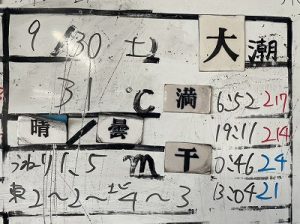 9/30 土 大潮
31 ℃ 満 6:52 217
晴/曇 19:11 214
うねり1.5m 干 0:46 24
東2〜2〜北4〜3 13:04 21